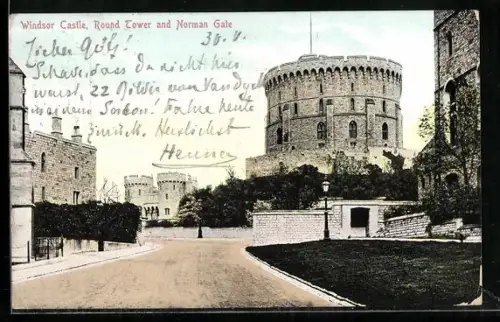 Windsor Castle, Round Tower and Norman Gate
30. V.
Lieber Götz!
Schade, dass du nicht hier
warst, 22 Bilder von Van Dyck
in einem Salon! Fahre heute
zurück. Herzlichst
Henna